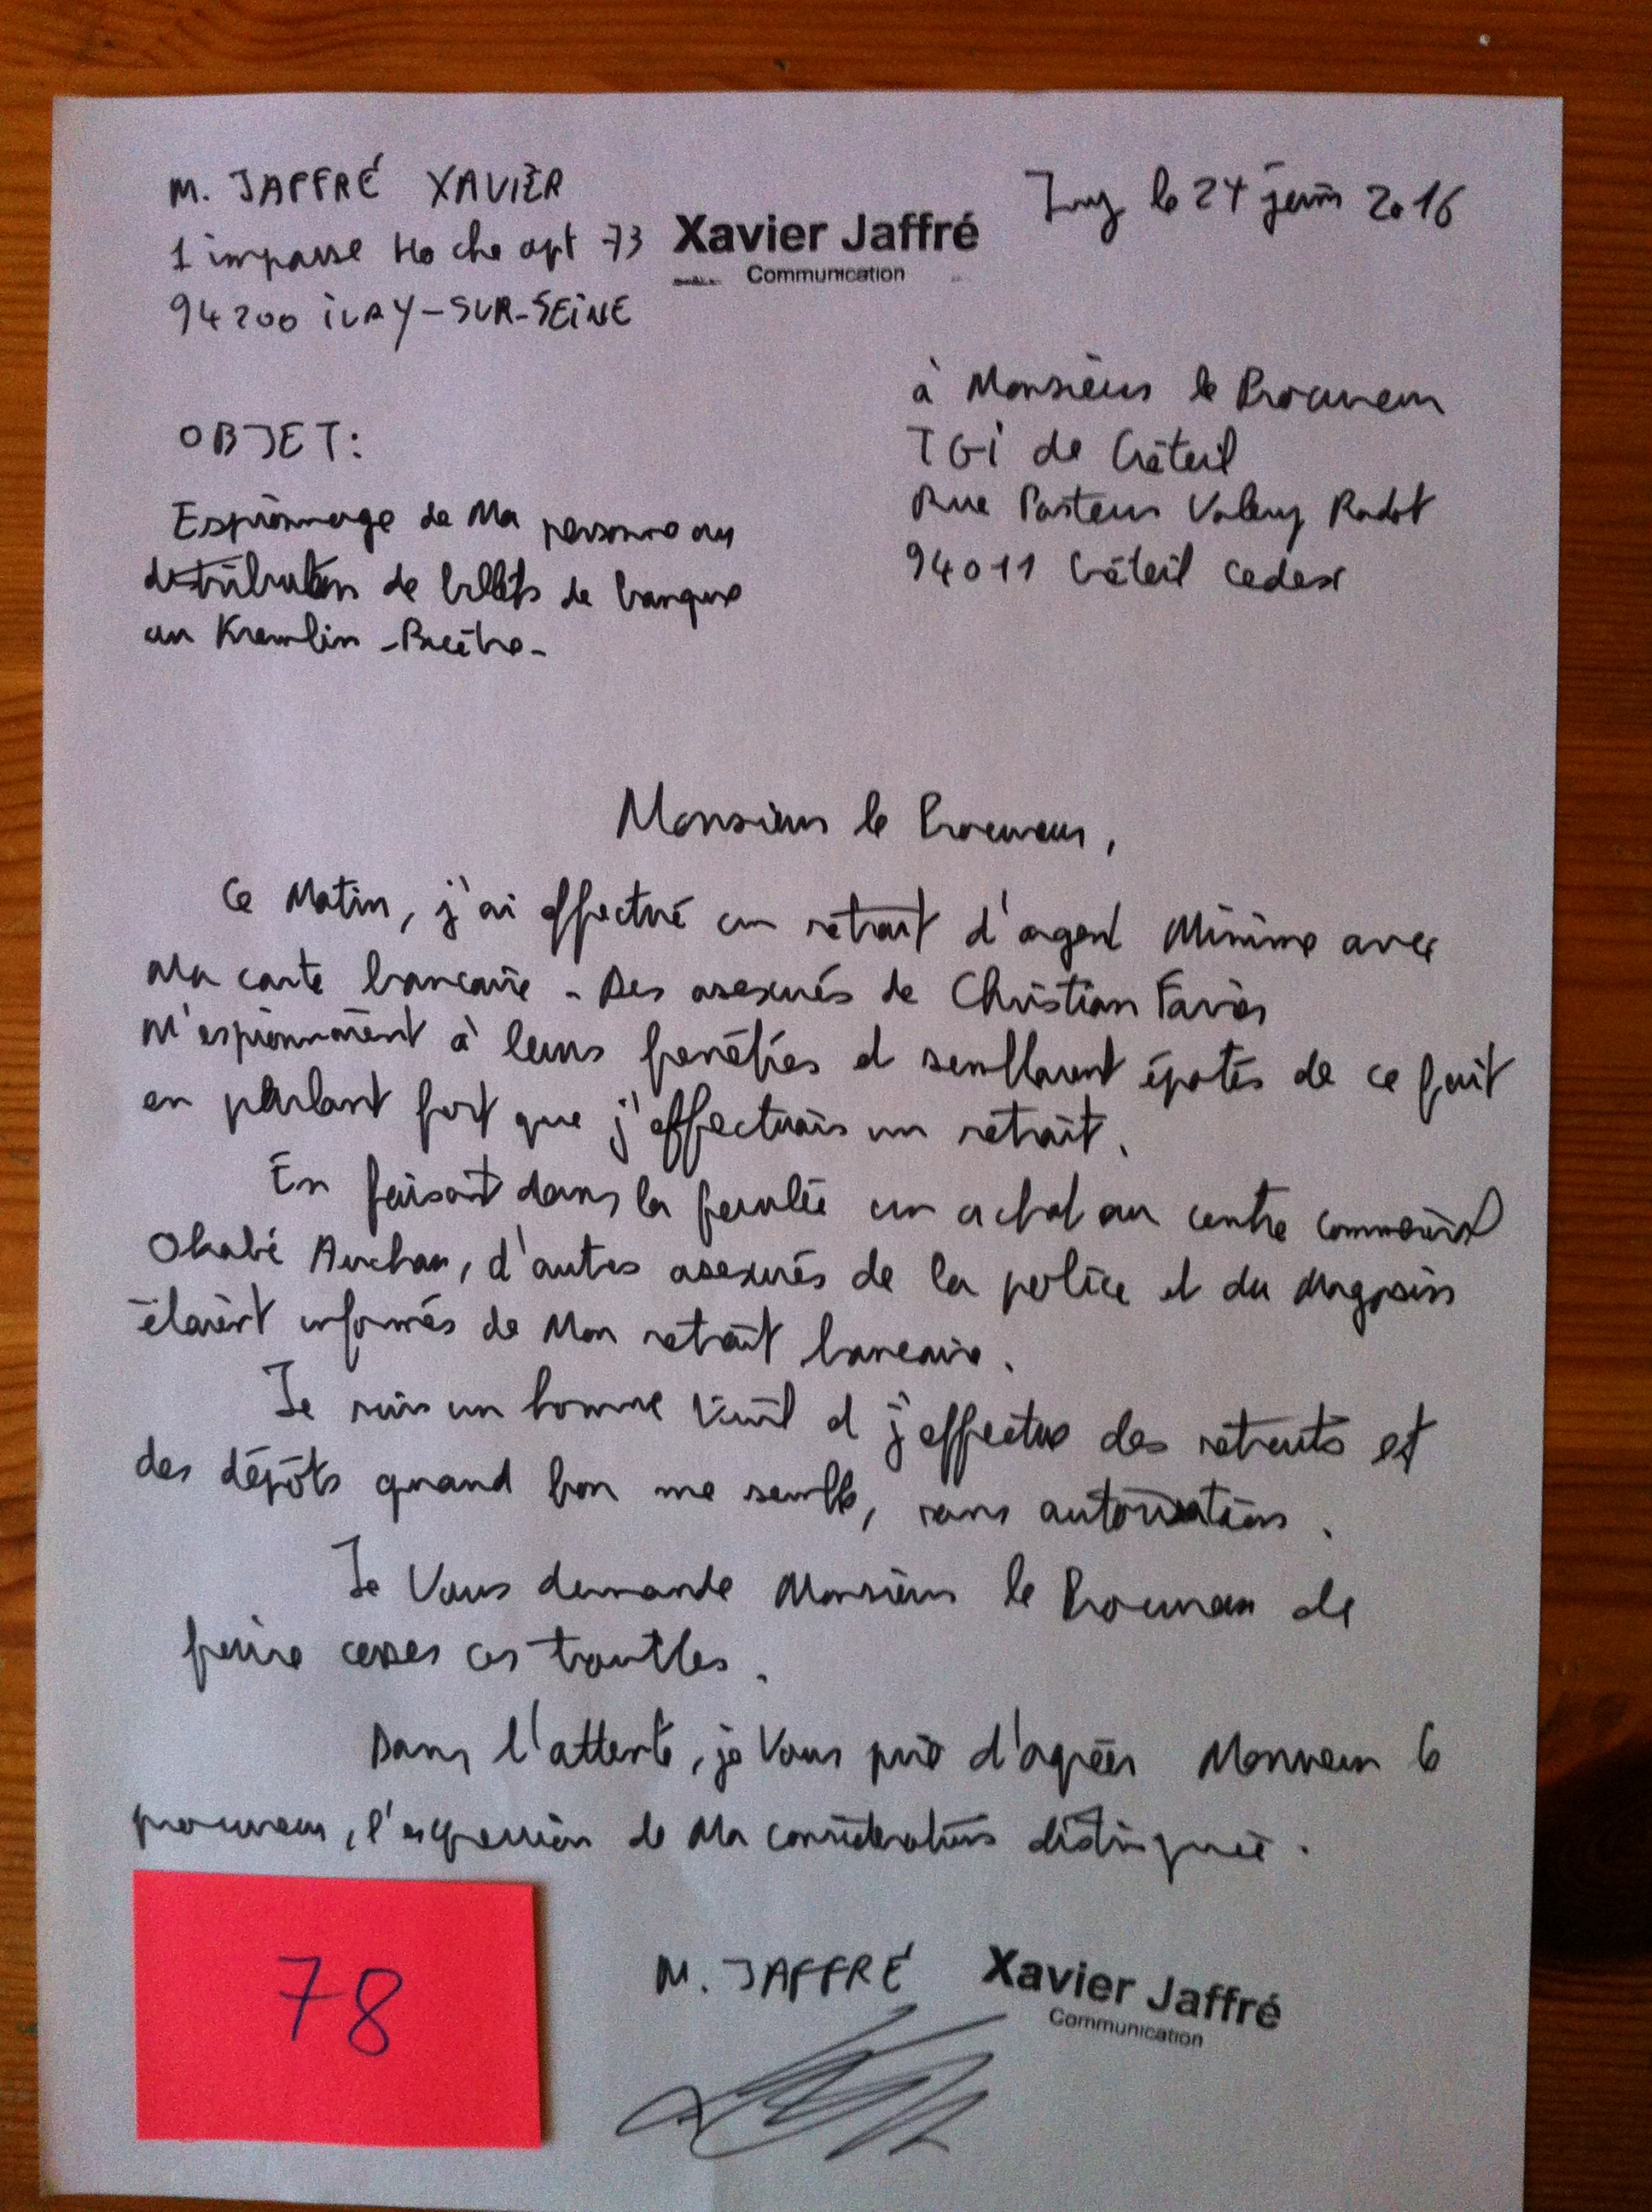 M. JAFFRÉ XAVIER
1 impasse Hoche apt 73
94200 IVRY-SUR-SEINE
Xavier Jaffré
Communication
Ivry le 24 juin 2016
à Monsieur le Procureur
TGI de Créteil
Rue Pasteur Valery Radot
94011 Créteil Cedex
OBJET:
Espionnage de Ma personne au
distributeur de billets de banque
au Kremlin-Bicêtre-
Monsieur le Procureur,
Ce Matin, j'ai effectué un retrait d'argent Minime avec
Ma carte bancaire - Des asexués de Christian Favier
M'espionnaient à leurs fenêtres et semblaient épatés de ce fait
en parlant fort que j'effectuais un retrait.
En faisant dans la foulée un achat au centre commercial
Okabé Auchan, d'autres asexués de la police et du Magasin
étaient informés de Mon retrait bancaire.
Je suis un homme Viril et j'effectue des retraits et
des dépôts quand bon me semble, sans autorisation.
Je Vous demande Monsieur le Procureur de
faire cesser ces troubles.
Dans l'attente, je Vous prie d'agréer Monsieur le
procureur, l'expression de Ma considération distinguée.
78
M. JAFFRÉ
Xavier Jaffré
Communication